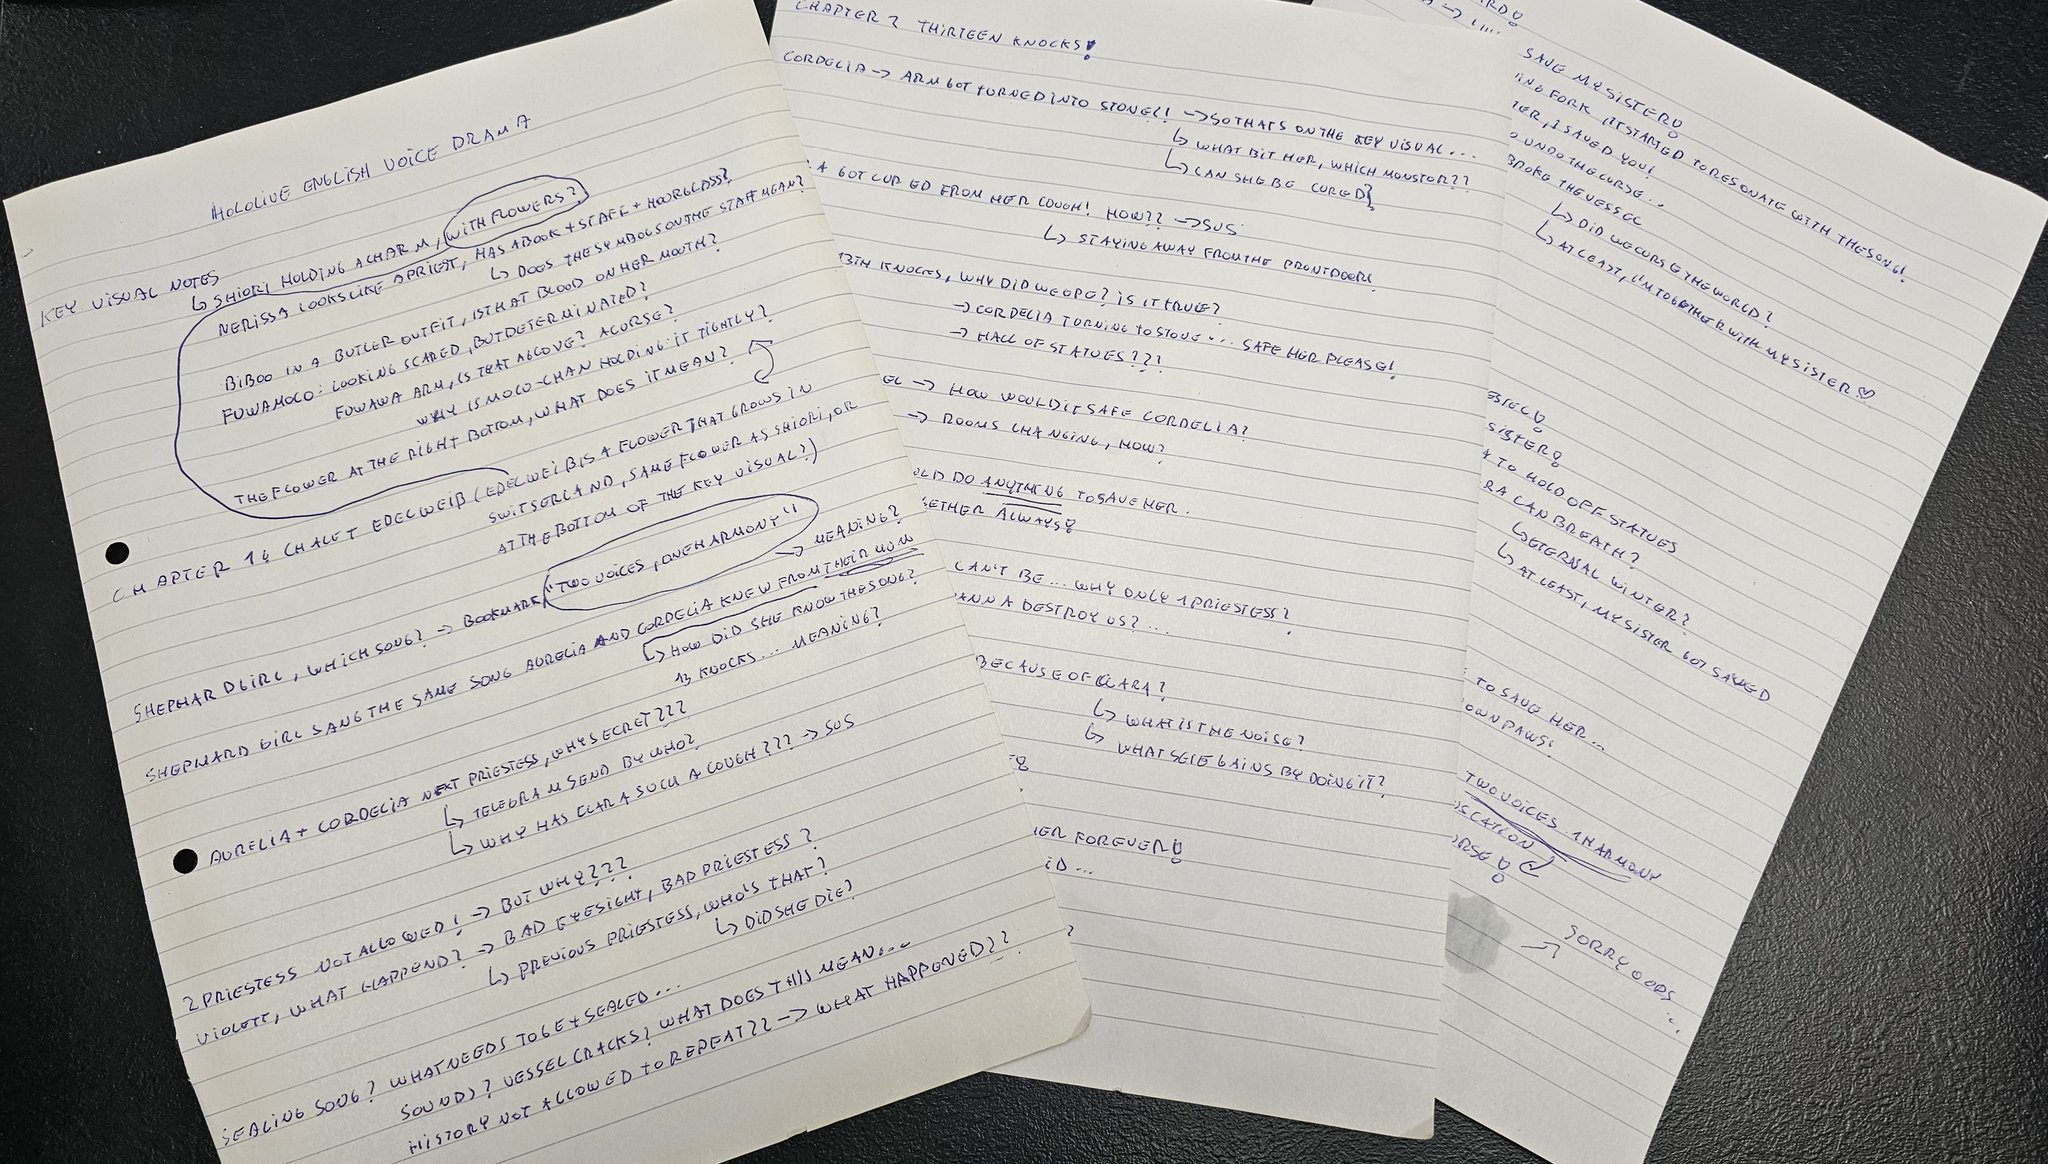 HOLOLIVE ENGLISH VOICE DRAMA
KEY VISUAL NOTES
↳ SHIORI HOLDING A CHARM, WITH FLOWERS?
NERISSA LOOKS LIKE A PRIEST, HAS A BOOK + STAFF + HOURGLASS?
↳ DOES THE SYMBOLS ON THE STAFF MEAN?
BIBOO IN A BUTLER OUTFIT, IS THAT BLOOD ON HER MOUTH?
FUWAMOCO: LOOKING SCARED, BUT DETERMINATED?
FUWAWA ARM, IS THAT A GLOVE? A CURSE?
WHY IS MOCO-CHAN HOLDING IT TIGHTLY?
THE FLOWER AT THE RIGHT BOTTOM, WHAT DOES IT MEAN?
CHAPTER 1: CHALET EDELWEIß (EDELWEIß IS A FLOWER THAT GROWS IN
SWITSERLAND, SAME FLOWER AS SHIORI, OR
AT THE BOTTOM OF THE KEY VISUAL?)
SHEPHARD GIRL, WHICH SONG? → BOOKMARK, "TWO VOICES, ONE HARMONY"!
→ MEANING?
SHEPHARD GIRL SANG THE SAME SONG AURELIA AND CORDELIA KNEW FROM THEIR MOM
↳ HOW DID SHE KNOW THE SONG?
13 KNOCKS... MEANING?
AURELIA + CORDELIA NEXT PRIESTESS, WHY SECRET???
↳ TELEGRAM SEND BY WHO?
↳ WHY HAS CLARA SUCH A COUGH??? → SUS
2 PRIESTESS NOT ALLOWED! → BUT WHY???
VIOLETT, WHAT HAPPEND? → BAD EYESIGHT, BAD PRIESTESS?
↳ PREVIOUS PRIESTESS, WHO'S THAT?
↳ DID SHE DIE?
SEALING SONG? WHAT NEEDS TO BE + SEALED...
SOUND)? VESSEL CRACKS? WHAT DOES THIS MEAN...
HISTORY NOT ALLOWED TO REPEAT?? → WHAT HAPPENED??
CHAPTER 2 THIRTEEN KNOCKS!
CORDELIA → ARM GOT TURNED INTO STONE?! → SO THATS ON THE KEY VISUAL...
↳ WHAT BIT HER, WHICH MONSTOR??
↳ CAN SHE BE CURED?
A GOT CURED FROM HER COUGH! HOW?? → SUS
↳ STAYING AWAY FROM THE FRONTDOOR?
13TH KNOCKS, WHY DID WE OPE? IS IT TRUE?
→ CORDELIA TURNING TO STONE... SAFE HER PLEASE!
→ HALL OF STATUES???
EL → HOW WOULD IT SAFE CORDELIA?
→ ROOMS CHANGING, HOW?
OLD DO ANYTHING TO SAVE HER.
GETHER ALWAYS!
CAN'T BE... WHY ONLY 1 PRIESTESS?
ANNA DESTROY US?...
BECAUSE OF CLARA?
↳ WHAT IS THE NOISE?
↳ WHAT SELE GAINS BY DOING IT?
HER FOREVER!
ID...
?
SAVE MY SISTER!
ING FORK RESTARTED TO RESONATE WITH THE SONG!
TER, I SAVED YOU!
O UNDO THE CURSE...
BROKE THE VESSEL
↳ DID WE CURSE THE WORLD?
↳ AT LEAST, I'M TOGETHER WITH MY SISTER ♡
ESSEL!
SISTER!
A TO HOLD OFF STATUES
RA CAN BREATH?
↳ ETERNAL WINTER?
↳ AT LEAST, MY SISTER GOT SAVED
TO SAVE HER...
OWN PAWS!
TWO VOICES 1 HARMONY
SORRY OOPS...